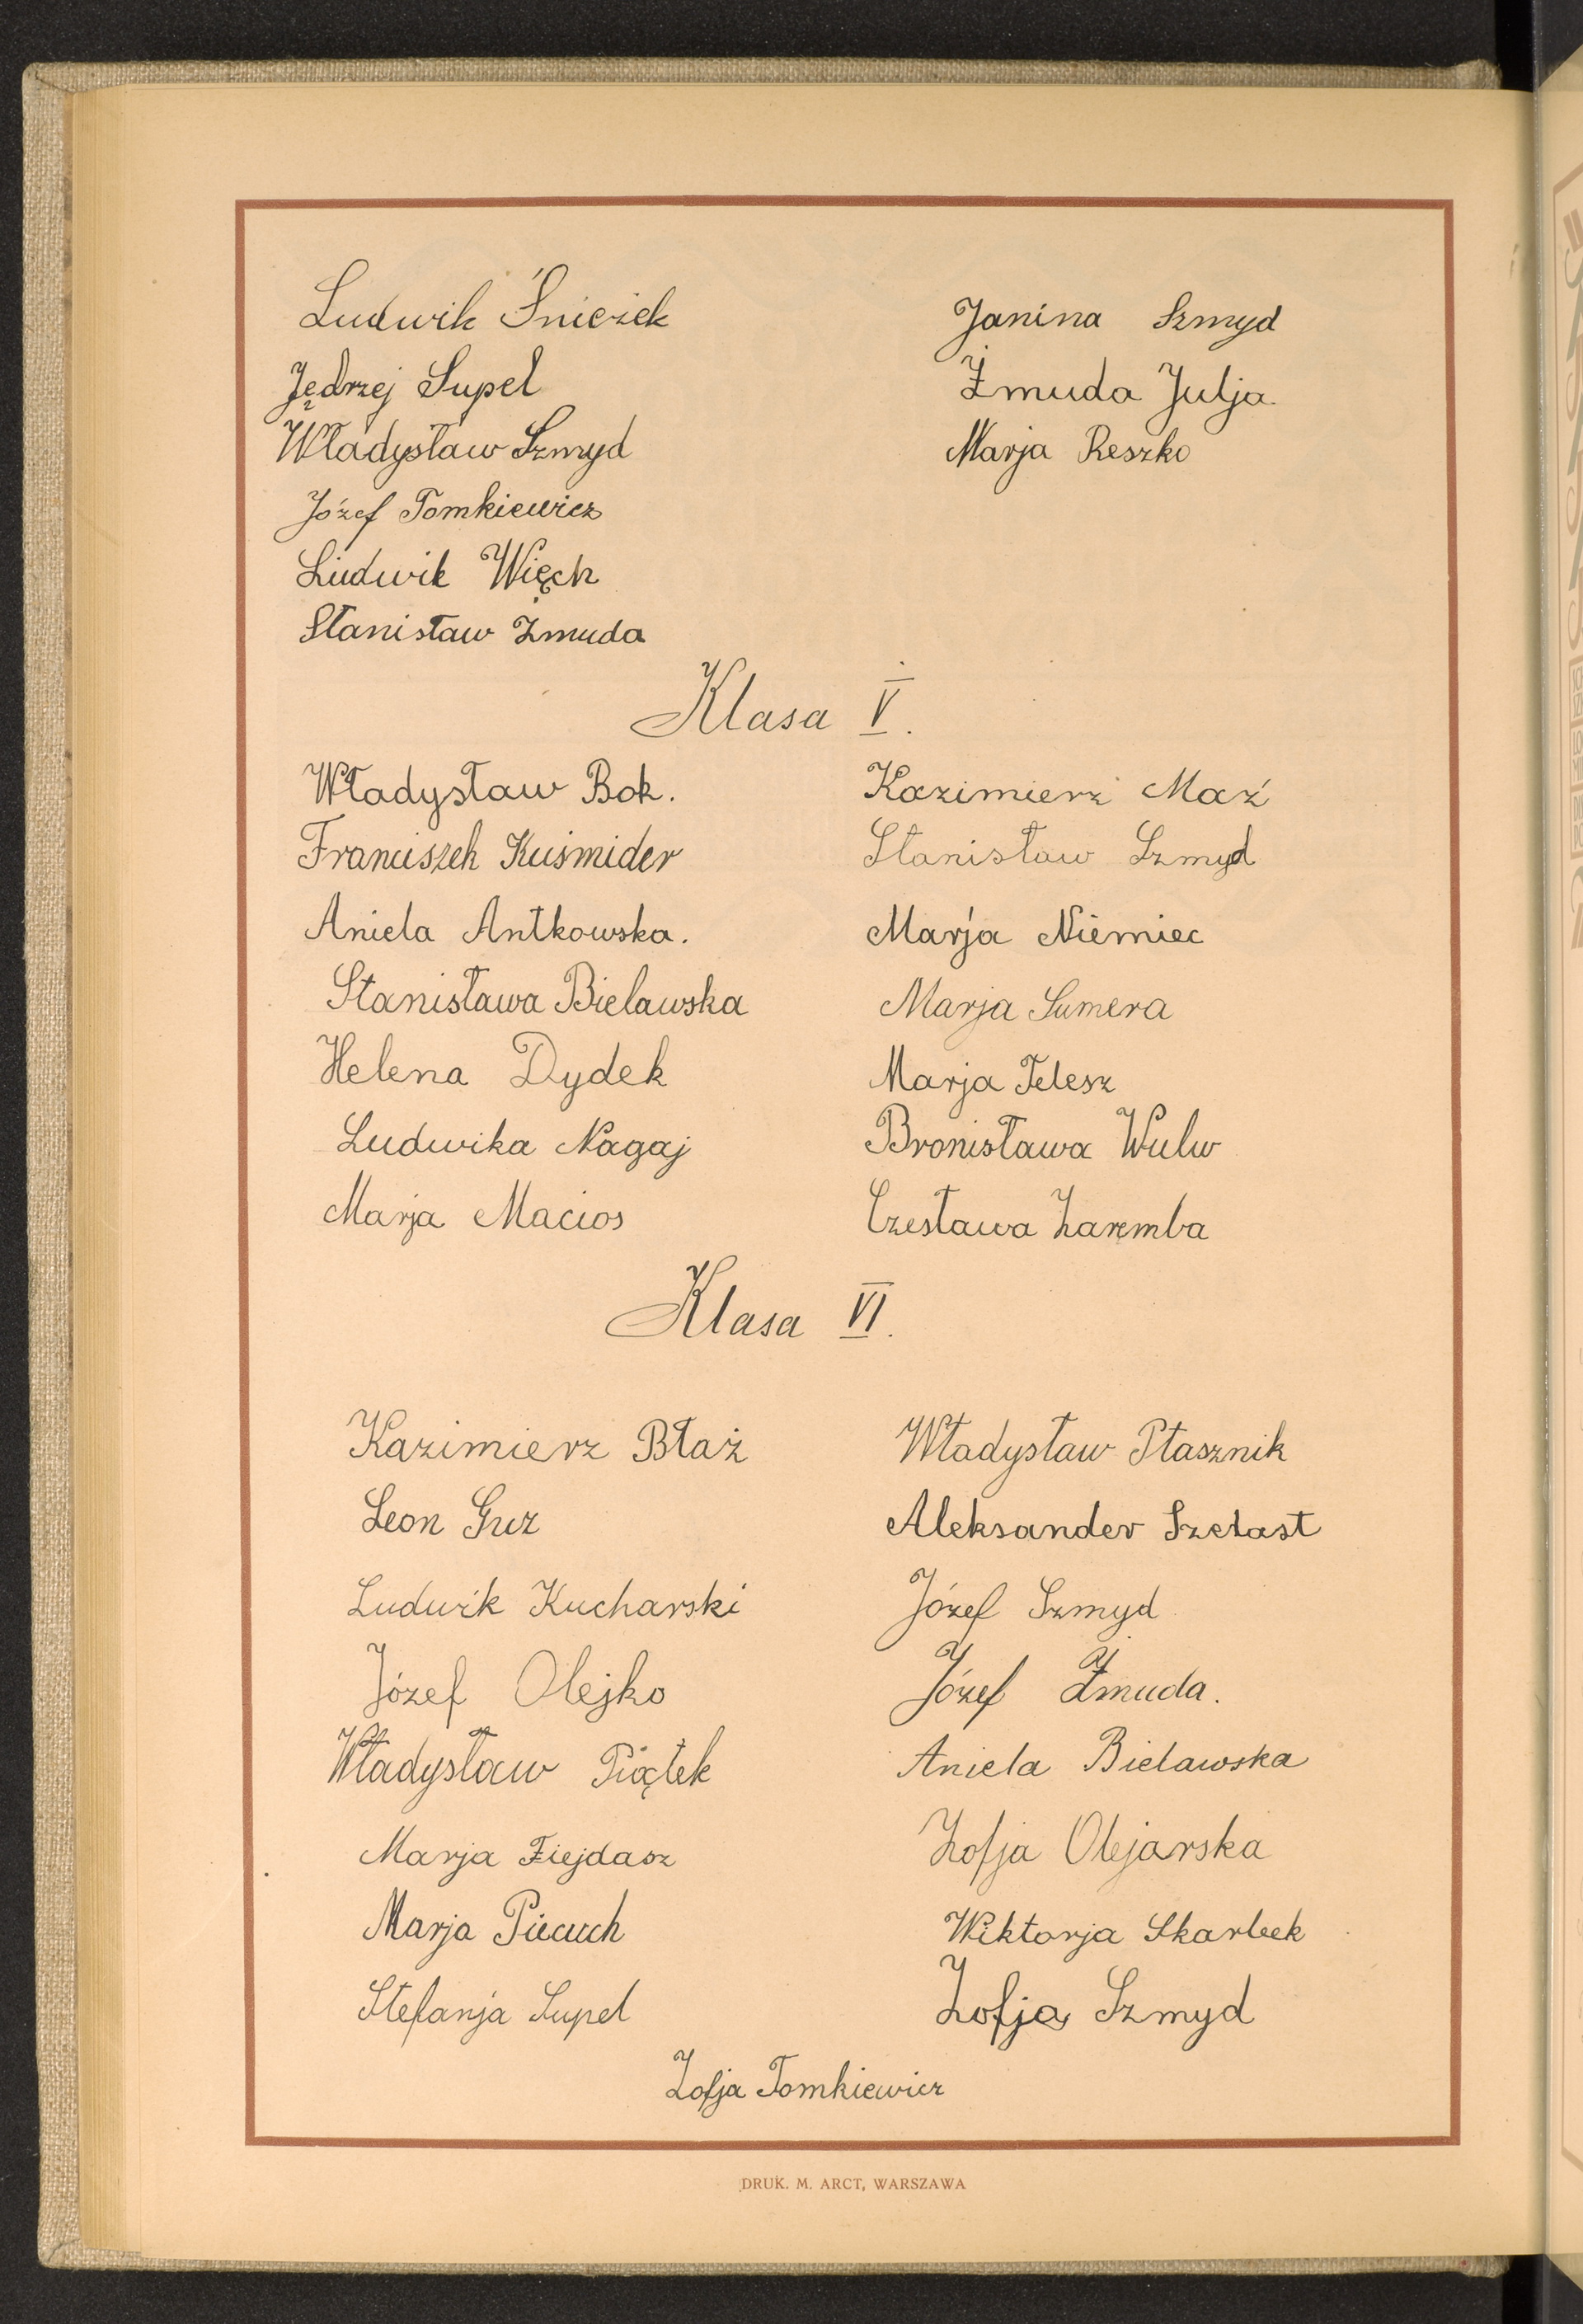 Ludwik Śnieżek
Jędrzej Supel
Władysław Szmyd
Józef Tomkiewicz
Ludwik Więch
Stanisław Żmuda
Janina Szmyd
Żmuda Julja
Marja Reszko
Klasa V.
Władysław Bok.
Franciszek Kuśmider
Aniela Antkowska.
Stanisława Bielawska
Helena Dydek
Ludwika Nagaj
Marja Macios
Kazimierz Maź
Stanisław Szmyd
Marja Niemiec
Marja Sumera
Marja Telesz
Bronisława Wulw
Czesława Zaremba
Klasa VI.
Kazimierz Błaż
Leon Guz
Ludwik Kucharski
Józef Olejko
Władysław Piątek
Marja Fiejdasz
Marja Piecuch
Stefanja Supel
Władysław Ptasznik
Aleksander Szelast
Józef Szmyd
Józef Żmuda.
Aniela Bielawska
Zofja Olejarska
Wiktorja Skarbek
Zofja Szmyd
Zofja Tomkiewicz
DRUK. M. ARCT, WARSZAWA